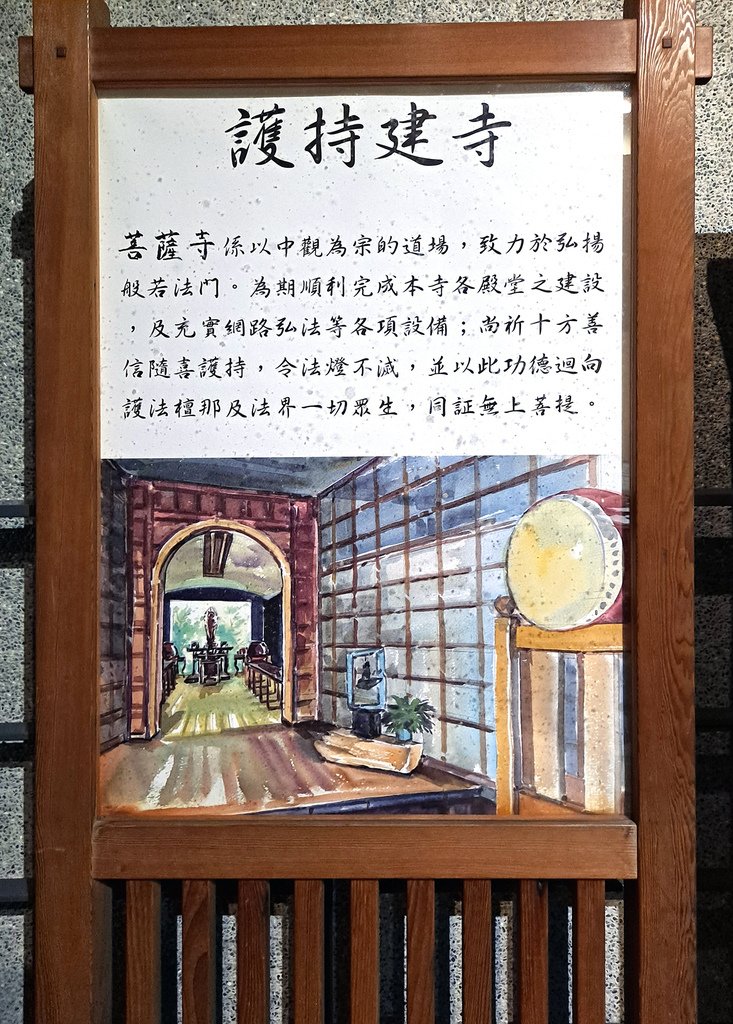 護持建寺
菩薩寺係以中觀為宗的道場，致力於弘揚
般若法門。為期順利完成本寺各殿堂之建設
，及充實網路弘法等各項設備；尚祈十方善
信隨喜護持，令法燈不滅，並以此功德迴向
護法檀那及法界一切眾生，同証無上菩提。